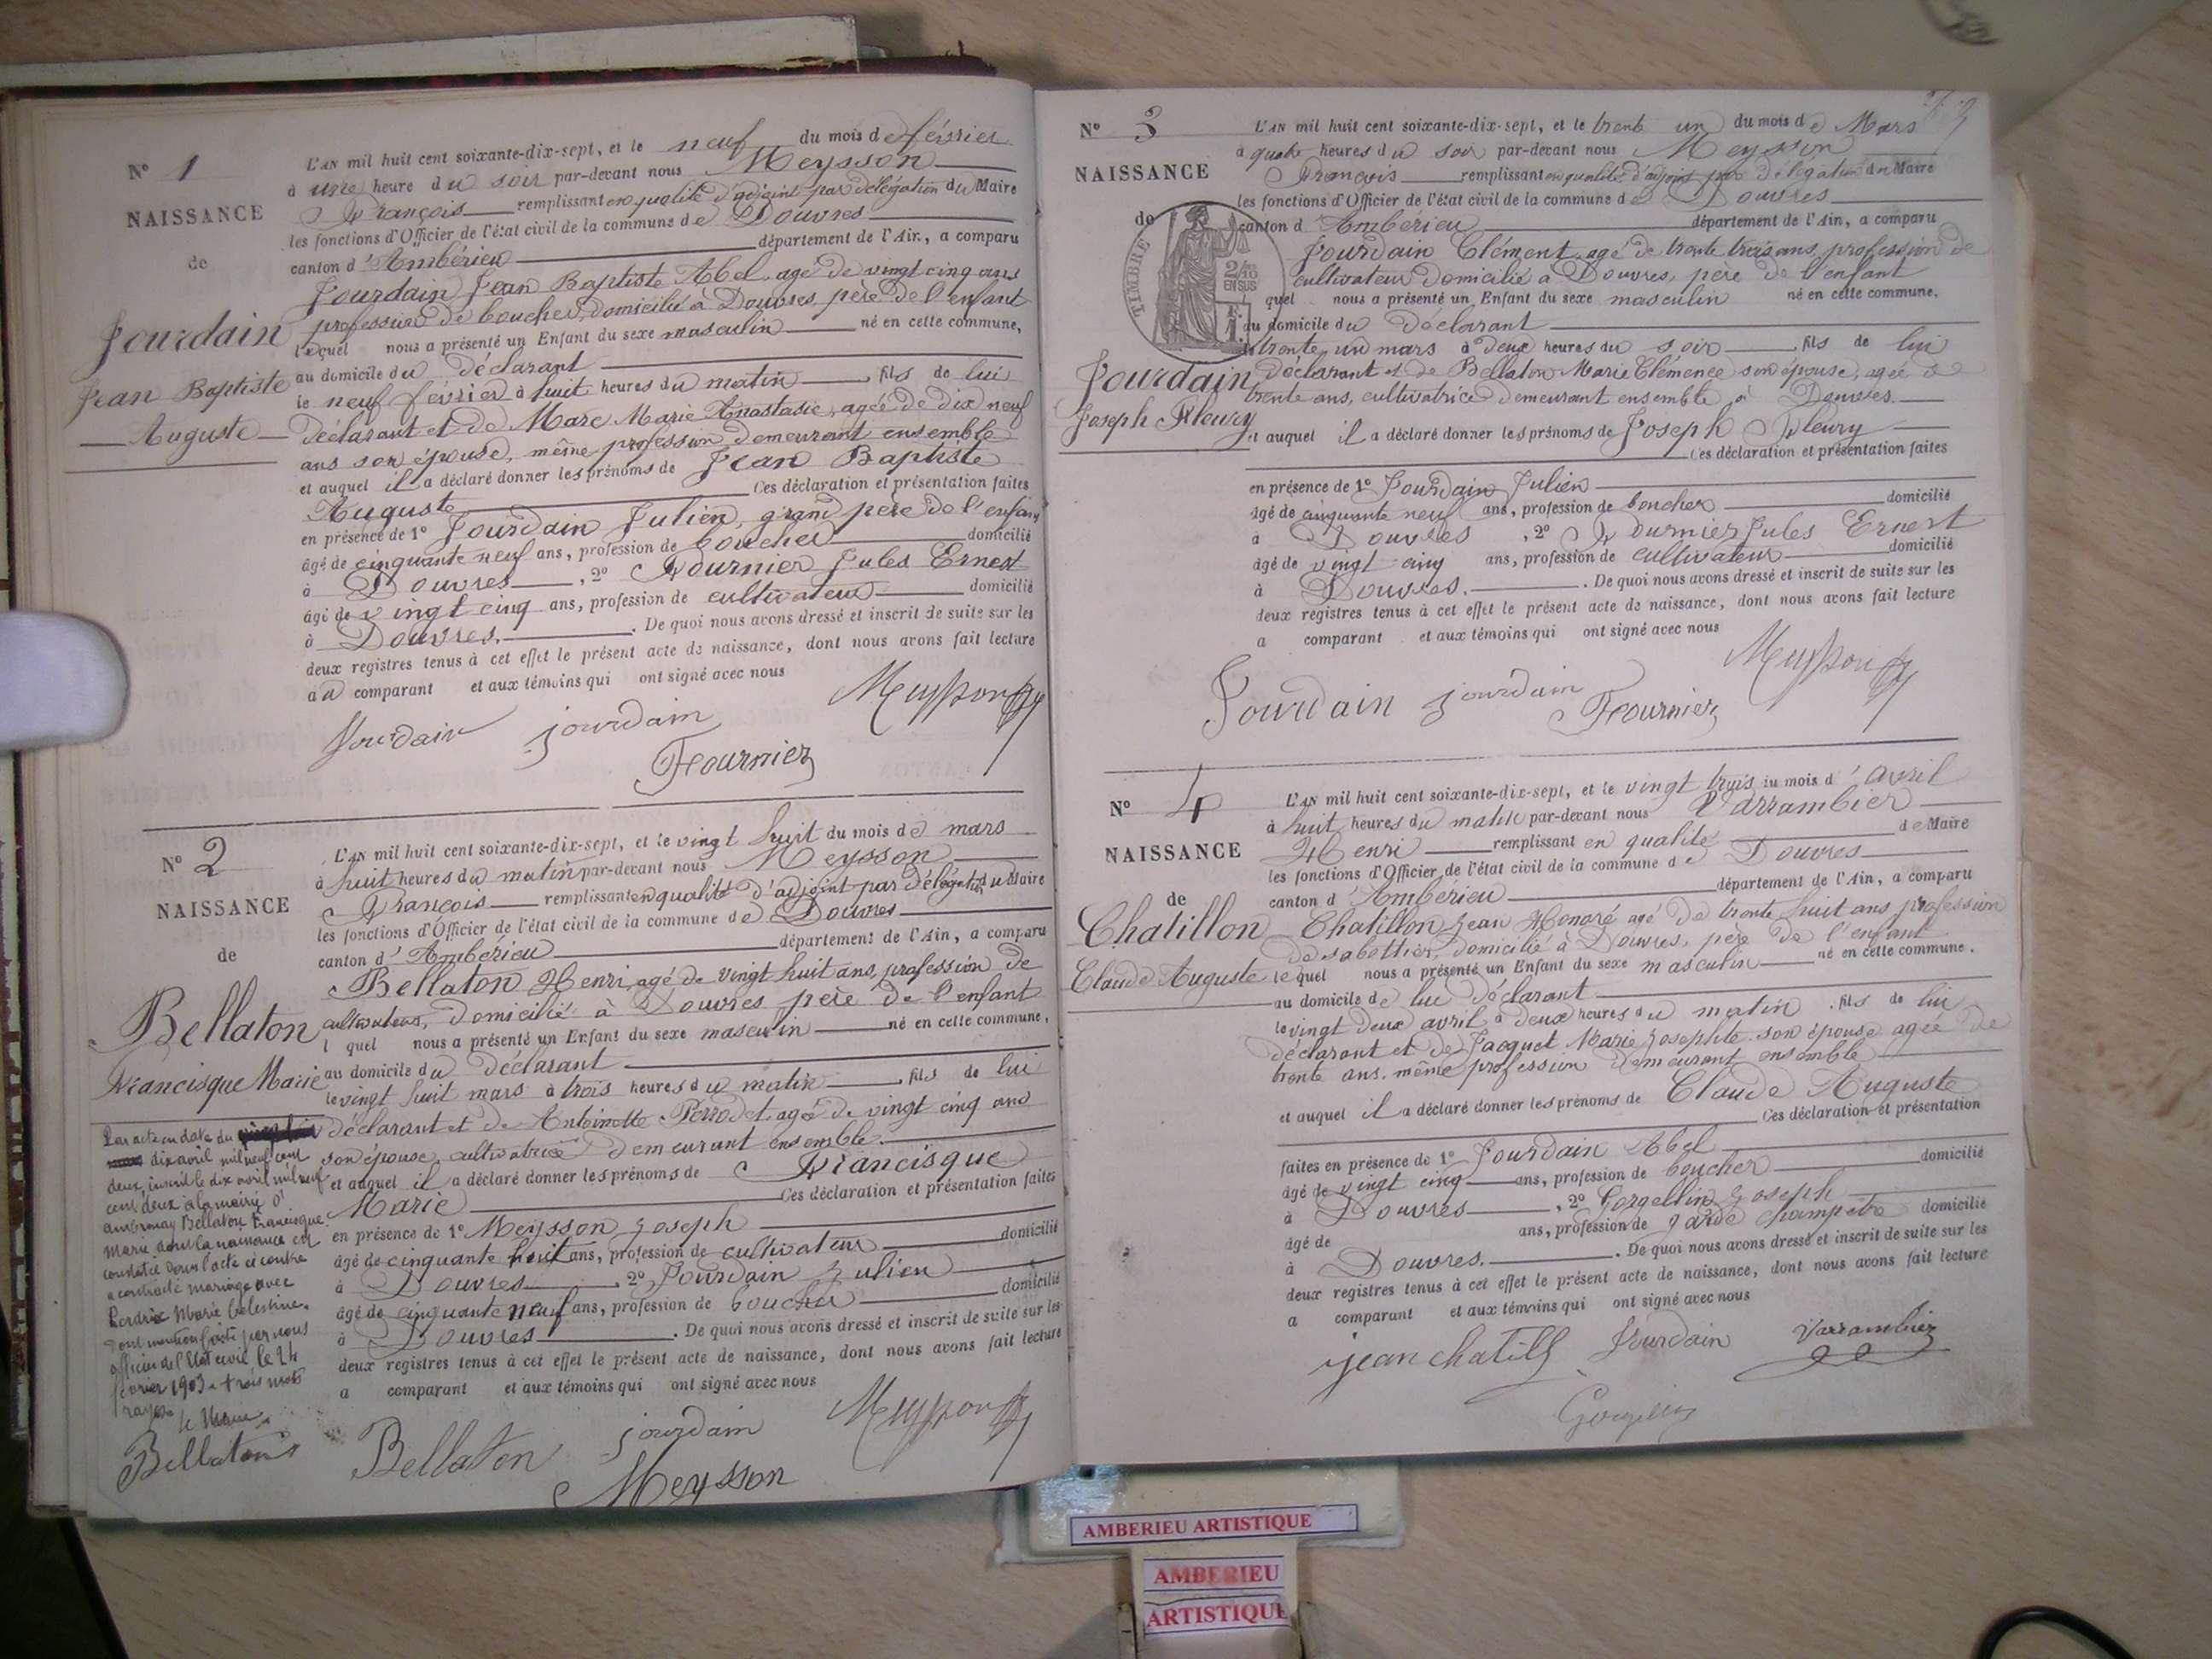 N° 1
NAISSANCE
de
Jourdain
Jean Baptiste
Auguste
L'AN mil huit cent soixante-dix-sept, et le neuf du mois de février
à une heure du soir par-devant nous Meysson
François remplissant en qualité d'adjoint par délégation du Maire
les fonctions d'Officier de l'état civil de la commune de Douvres
canton d'Ambérieu département de l'Ain, a comparu
Jourdain Jean Baptiste Abel, agé de vingt cinq ans
profession de boucher, domicilié à Douvres, père de l'enfant
lequel nous a présenté un Enfant du sexe masculin né en cette commune,
au domicile du déclarant
le neuf février à huit heures du matin, fils de lui
déclarant et de Marc Marie Anastasie, agée de dix neuf
ans son épouse, même profession, demeurant ensemble
et auquel il a déclaré donner les prénoms de Jean Baptiste
Auguste Ces déclaration et présentation faites
en présence de 1° Jourdain Julien, grand père de l'enfant
âgé de cinquante neuf ans, profession de boucher domicilié
à Douvres, 2° Fournier Jules Ernest
âgé de vingt cinq ans, profession de cultivateur domicilié
à Douvres. De quoi nous avons dressé et inscrit de suite sur les
deux registres tenus à cet effet le présent acte de naissance, dont nous avons fait lecture
au comparant et aux témoins qui ont signé avec nous
Jourdain jourdain Meysson
Fournier
N° 2
NAISSANCE
de
Bellaton
Francisque Marie
L'AN mil huit cent soixante-dix-sept, et le vingt huit du mois de mars
à huit heures du matin par-devant nous Meysson
François remplissant en qualité d'adjoint par délégation du Maire
les fonctions d'Officier de l'état civil de la commune de Douvres
canton d'Ambérieu département de l'Ain, a comparu
Bellaton Henri, agé de vingt huit ans, profession de
cultivateur, domicilié à Douvres père de l'enfant
l quel nous a présenté un Enfant du sexe masculin né en cette commune,
au domicile du déclarant
le vingt huit mars à trois heures du matin, fils de lui
déclarant et de Antoinette Perrodet agé de vingt cinq ans
son épouse, cultivatrice demeurant ensemble
et auquel il a déclaré donner les prénoms de Francisque
Marie Ces déclaration et présentation faites
en présence de 1° Meysson Joseph
âgé de cinquante huit ans, profession de cultivateur domicilié
à Douvres, 2° Jourdain Julien
âgé de cinquante neuf ans, profession de boucher domicilié
à Douvres. De quoi nous avons dressé et inscrit de suite sur les
deux registres tenus à cet effet le présent acte de naissance, dont nous avons fait lecture
a comparant et aux témoins qui ont signé avec nous
Bellaton jourdain Meysson
Meysson
Par acte en date du
dix avril mil neuf cent
deux, inscrit le dix avril mil neuf
cent deux à la mairie d'
ambronay Bellaton Francisque
Marie dont la naissance est
constatée dans l'acte ci contre
a contracté mariage avec
Perdrix Marie Célestine.
dont mention faite par nous
officier de l'Etat civil le 24
février 1903. trois mots
rayés
le Maire
Bellaton
N° 3
NAISSANCE
de
TIMBRE
2/10
EN SUS
Jourdain
Joseph Fleury
L'AN mil huit cent soixante-dix-sept, et le trente un du mois de Mars
à quatre heures du soir par-devant nous Meysson
François remplissant en qualité d'adjoint par délégation du Maire
les fonctions d'Officier de l'état civil de la commune de Douvres
canton d'Ambérieu département de l'Ain, a comparu
Jourdain Clément, agé de trente trois ans, profession de
cultivateur domicilié à Douvres, père de l'enfant
l quel nous a présenté un Enfant du sexe masculin né en cette commune,
au domicile du déclarant
le trente un mars à deux heures du soir, fils de lui
déclarant et de Bellaton Marie Clémence son épouse, agée de
trente ans, cultivatrice demeurant ensemble à Douvres.
et auquel il a déclaré donner les prénoms de Joseph Fleury
Ces déclaration et présentation faites
en présence de 1° Jourdain Julien
âgé de cinquante neuf ans, profession de boucher domicilié
à Douvres, 2° Fournier Jules Ernest
âgé de vingt cinq ans, profession de cultivateur domicilié
à Douvres. De quoi nous avons dressé et inscrit de suite sur les
deux registres tenus à cet effet le présent acte de naissance, dont nous avons fait lecture
a comparant et aux témoins qui ont signé avec nous
Jourdain jourdain Fournier Meysson
N° 4
NAISSANCE
de
Chatillon
Claude Auguste
L'AN mil huit cent soixante-dix-sept, et le vingt trois du mois d'avril
à huit heures du matin par-devant nous Varrambier
Henri remplissant en qualité de Maire
les fonctions d'Officier de l'état civil de la commune de Douvres
canton d'Ambérieu département de l'Ain, a comparu
Chatillon Jean Honoré agé de trente huit ans profession
de sabottier, domicilié à Douvres, père de l'enfant
lequel nous a présenté un Enfant du sexe masculin né en cette commune,
au domicile de lui déclarant
le vingt deux avril à deux heures du matin, fils de lui
déclarant et de Jacquet Marie Josephte son épouse agée de
trente ans, même profession demeurant ensemble
et auquel il a déclaré donner les prénoms de Claude Auguste
Ces déclaration et présentation
faites en présence de 1° Jourdain Abel
âgé de vingt cinq ans, profession de boucher domicilié
à Douvres, 2° Gorgellin Joseph
âgé de ans, profession de garde champêtre domicilié
à Douvres. De quoi nous avons dressé et inscrit de suite sur les
deux registres tenus à cet effet le présent acte de naissance, dont nous avons fait lecture
a comparant et aux témoins qui ont signé avec nous
jean chatill Jourdain Varrambier
AMBERIEU ARTISTIQUE
AMBERIEU
ARTISTIQUE